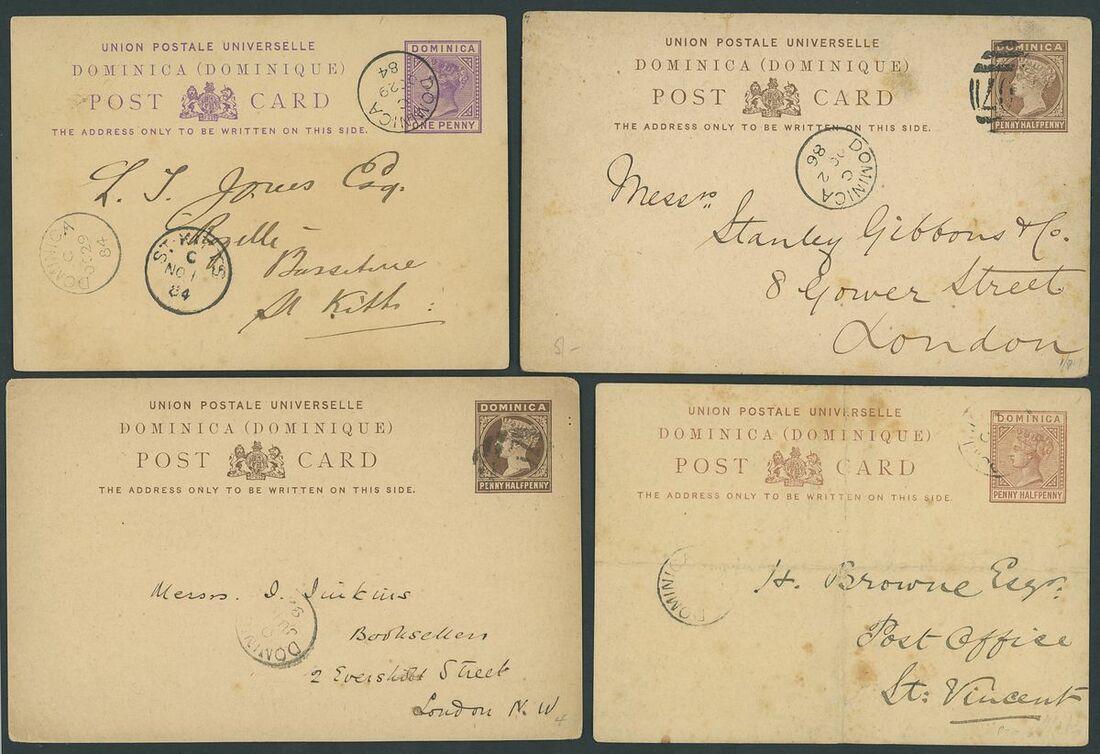 UNION POSTALE UNIVERSELLE
DOMINICA (DOMINIQUE)
POST CARD
THE ADDRESS ONLY TO BE WRITTEN ON THIS SIDE.
DOMINICA
ONE PENNY
DOMINICA
C
OC 29
84
L. J. Jones Esq.
Basseterre
St Kitts
DOMINICA
C
OC 29
84
ST. KITTS
C
NO 1
84
UNION POSTALE UNIVERSELLE
DOMINICA (DOMINIQUE)
POST CARD
THE ADDRESS ONLY TO BE WRITTEN ON THIS SIDE.
DOMINICA
PENNY HALFPENNY
DOMINICA
C
Messrs
Stanley Gibbons & Co.
8 Gower Street
London
5/-
UNION POSTALE UNIVERSELLE
DOMINICA (DOMINIQUE)
POST CARD
THE ADDRESS ONLY TO BE WRITTEN ON THIS SIDE.
DOMINICA
PENNY HALFPENNY
Messrs. I. Jinkins
Booksellers
2 Eversholt Street
London N. W
4
UNION POSTALE UNIVERSELLE
DOMINICA (DOMINIQUE)
POST CARD
THE ADDRESS ONLY TO BE WRITTEN ON THIS SIDE.
DOMINICA
PENNY HALFPENNY
DOMINICA
H. Browne Esqr.
Post Office
St: Vincent